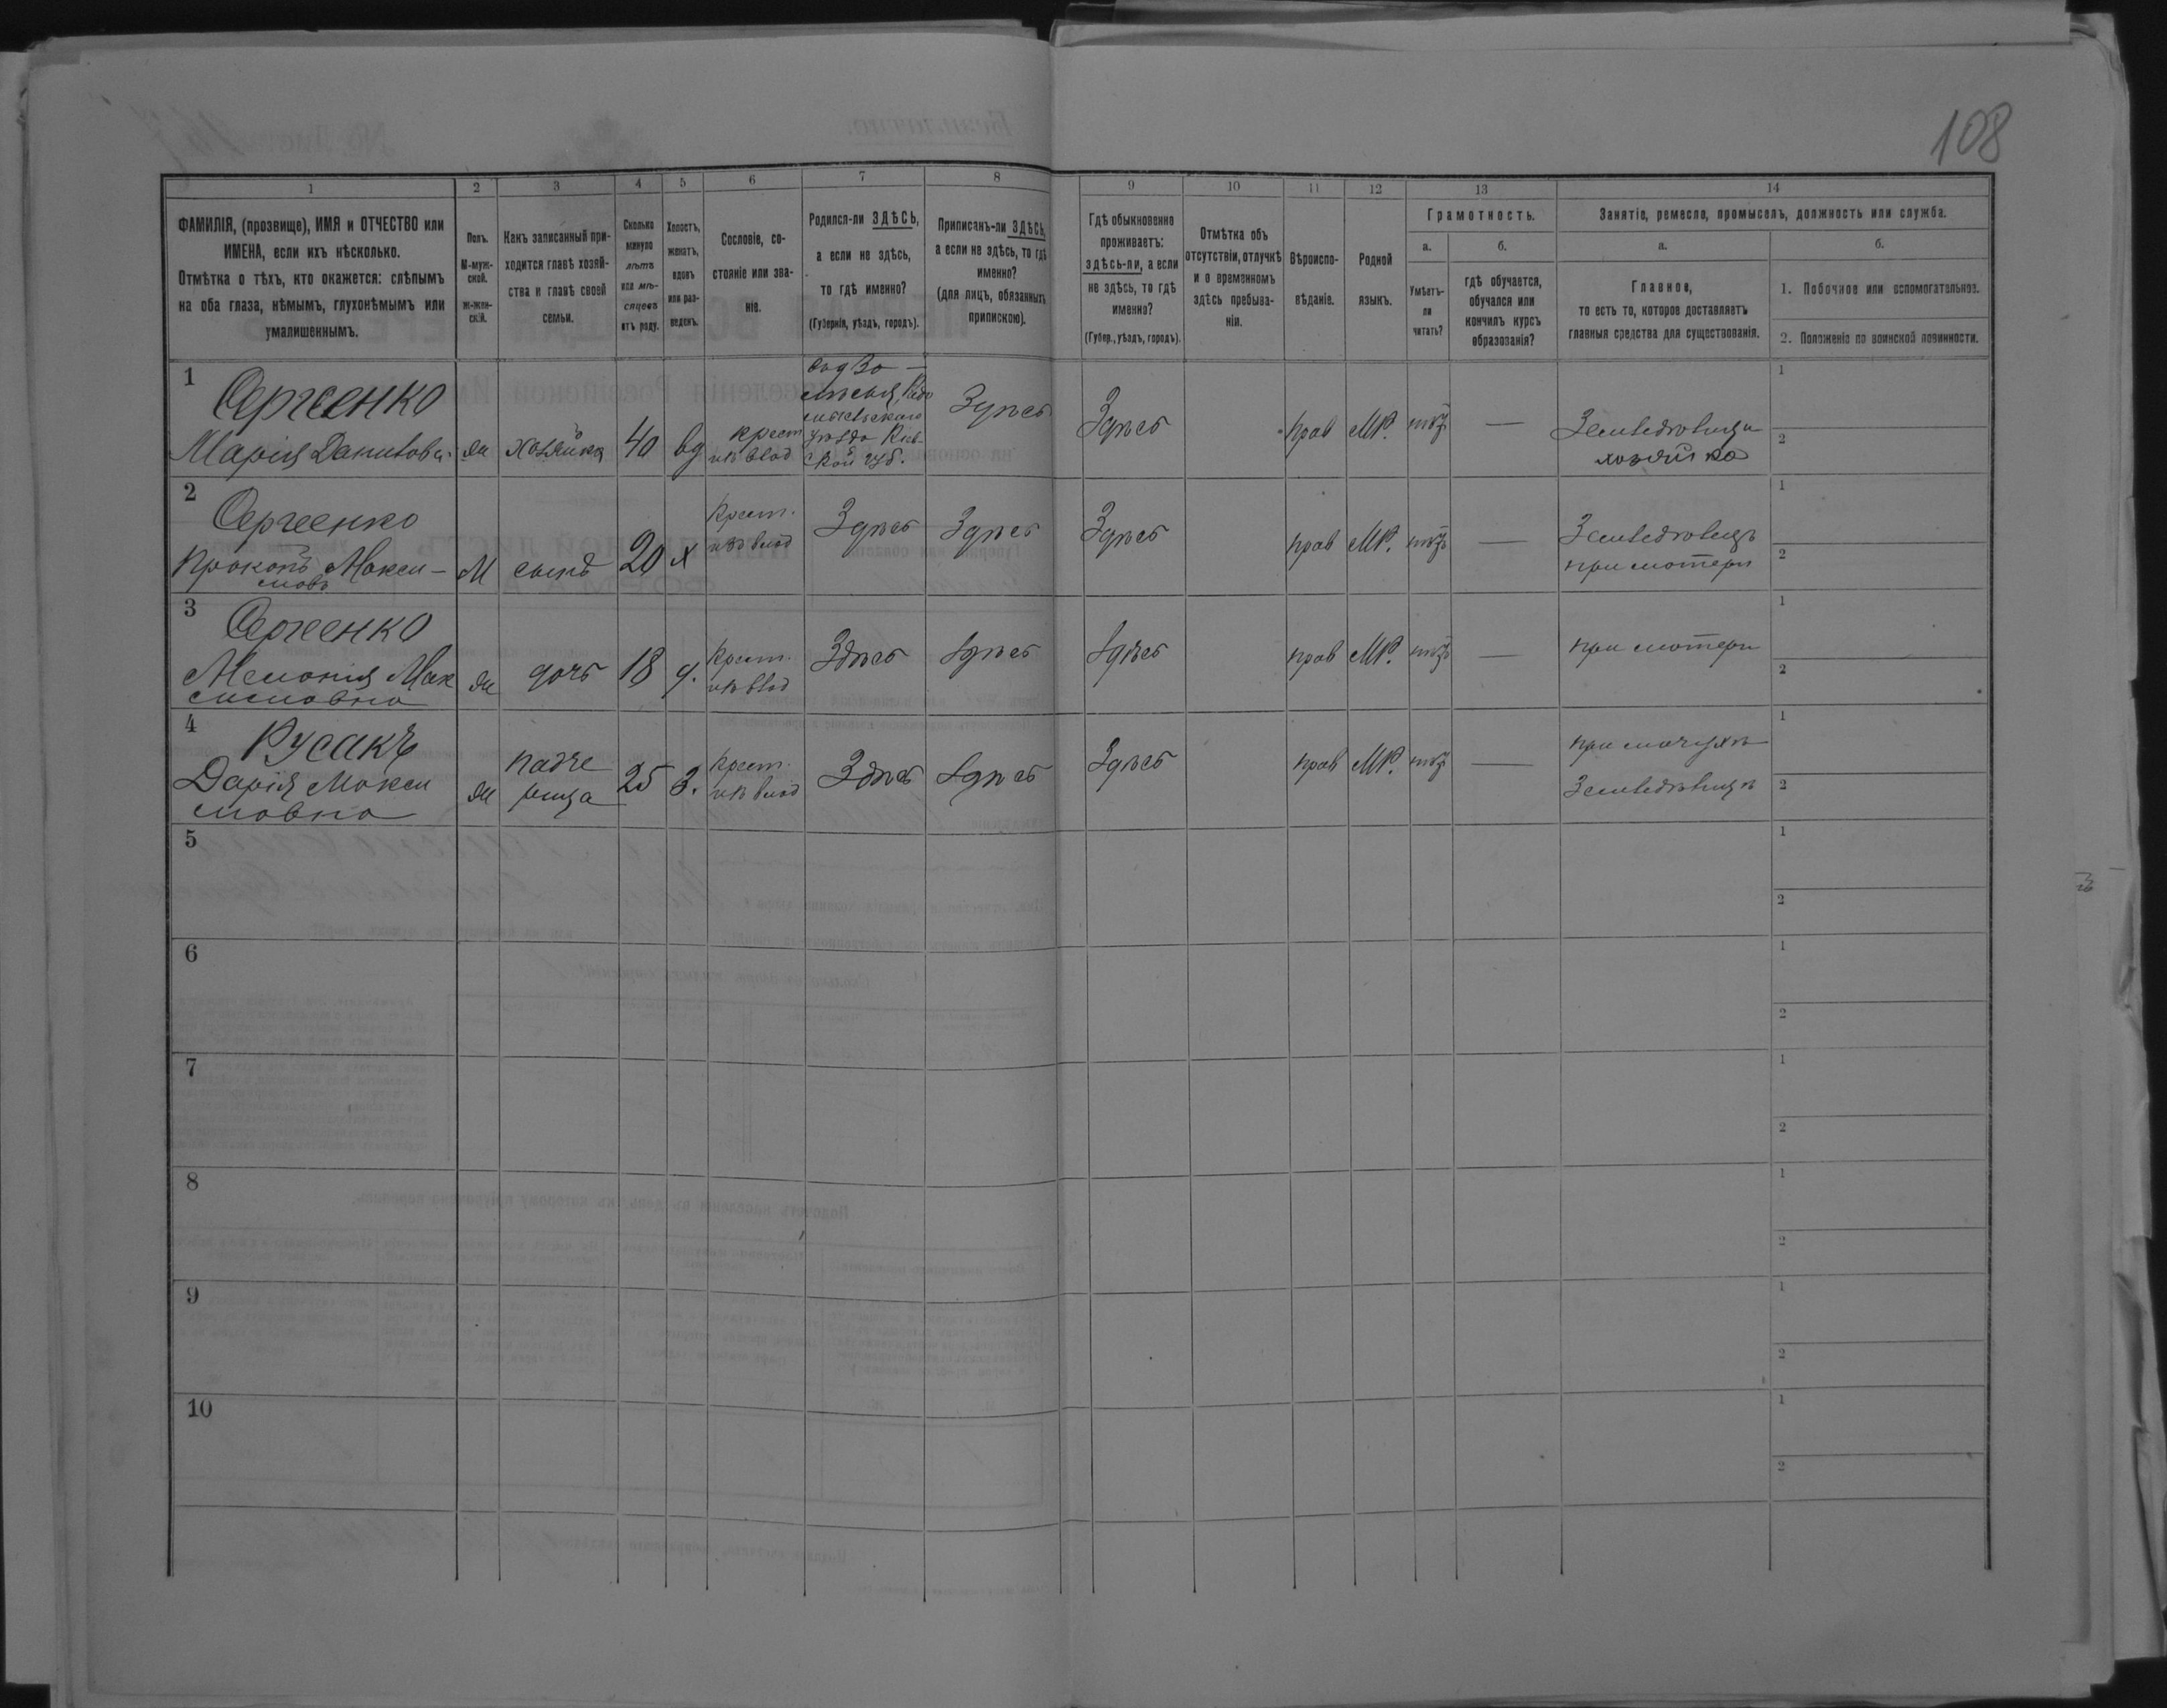 108
1 2 3 4 5 6 7 8 9 10 11 12 13 14
ФАМИЛІЯ, (прозвище), ИМЯ и ОТЧЕСТВО или
ИМЕНА, если ихъ нѣсколько.
Отмѣтка о тѣхъ, кто окажется: слѣпымъ
на оба глаза, нѣмымъ, глухонѣмымъ или
умалишеннымъ.
Полъ.
М-муж-
ской.
Ж-жен-
скій.
Какъ записанный при-
ходится главѣ хозяй-
ства и главѣ своей
семьи.
Сколько
минуло
лѣтъ
или мѣ-
сяцевъ
отъ роду.
Холостъ,
женатъ,
вдовъ
или раз-
веденъ.
Сословіе, со-
стояніе или зва-
ніе.
Родился-ли ЗДѢСЬ,
а если не здѣсь,
то гдѣ именно?
(Губернія, уѣздъ, городъ).
Приписанъ-ли ЗДѢСЬ,
а если не здѣсь, то гдѣ
именно?
(для лицъ, обязанныхъ
припискою).
Гдѣ обыкновенно
проживаетъ:
здѣсь-ли, а если
не здѣсь, то гдѣ
именно?
(Губер., уѣздъ, городъ).
Отмѣтка объ
отсутствіи, отлучкѣ
и о временномъ
здѣсь пребыва-
ніи.
Вѣроиспо-
вѣданіе.
Родной
языкъ.
Грамотность.
а.
Умѣетъ-
ли
читать?
б.
гдѣ обучается,
обучался или
кончилъ курсъ
образованія?
Занятіе, ремесло, промыселъ, должность или служба.
а.
Главное,
то есть то, которое доставляетъ
главныя средства для существованія.
б.
1. Побочное или вспомогательное.
2. Положеніе по воинской повинности.
1
Сергеенко
Марія Данилова
жи
хозяйка
40
вд
крест
изъ влад
уѣзда Кіев-
ской губ.
Здѣсь
Здѣсь
прав
МР.
нѣтъ
—
хозяйка
1
2
2
Сергеенко
Прокопъ Макси-
мовъ
М
сынъ
20
х
крест.
изъ влад
Здѣсь
Здѣсь
Здѣсь
прав
МР.
нѣтъ
—
Земледѣлецъ
при матери
1
2
3
Сергеенко
Меланія Мак
симовна
жи
дочь
18
д.
крест.
изъ влад
Здѣсь
Здѣсь
Здѣсь
прав
МР.
нѣтъ
—
при матери
1
2
4
Русакъ
Дарія Макси
мовна
жи
падче
рица
25
З.
крест.
изъ влад
Здѣсь
Здѣсь
Здѣсь
прав
МР.
нѣтъ
—
при мачухѣ
1
2
5
1
2
6
1
2
7
1
2
8
1
2
9
1
2
10
1
2